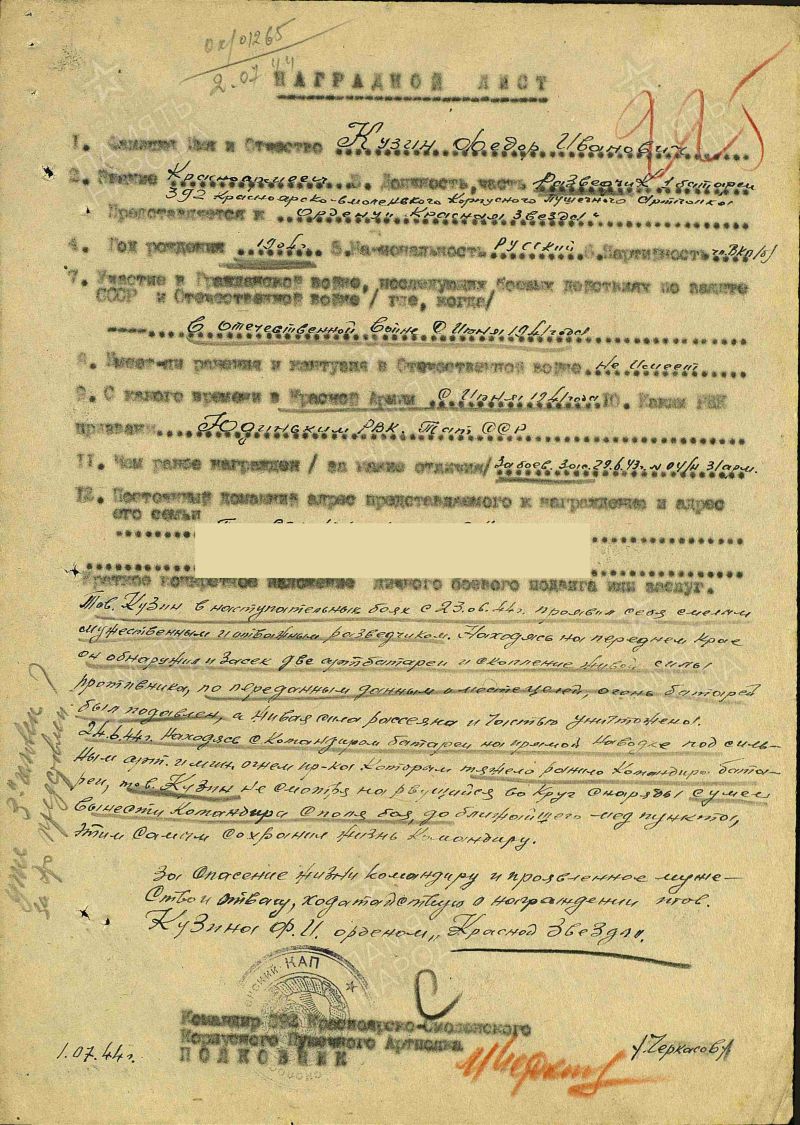 ох/01265
2.07.44
НАГРАДНОЙ ЛИСТ
225
1. Фамилия Имя и Отчество Кузин Федор Иванович
2. Звание Красноармеец 3. Должность, часть Разведчик 1 батареи
392 Красноярско-Смоленского Корпусного Пушечного Артполка
Представляется к Ордену "Красная Звезда"
4. Год рождения 1904г. 5. Национальность Русский 6. Партийность чл.ВКП/б/
7. Участие в Гражданской войне, последующих боевых действиях по защите
СССР и Отечественной войне / где, когда/
В отечественной войне с Июня 1941 года
8. Имеет-ли ранения и контузия в Отечественной войне не имеет
9. С какого времени в Красной Армии С Июня 1941 года 10. Каким РВК
призван Юдиньким РВК. Тат ССР
11. Чем ранее награжден / за какие отличия/ За боев. Засл. 29.6.43г. 31 арм.
12. Постоянный домашний адрес представляемого к награждению и адрес
его семьи
Краткое конкретное изложение личного боевого подвига или заслуг.
Тов. Кузин в наступательных боях с 23.06.44г. проявил себя смелым
мужественным и отважным разведчиком. Находясь на переднем крае
он обнаружил и засек две артбатареи и скопление живой силы
противника, по переданным данным о месте целей, огонь батарей
был подавлен, а живая сила рассеяна и частью уничтожена.
24.6.44г. Находясь с Командиром батареи на прямой Наводке под силь-
ным арт. и мин. огнем пр-ка Которым тяжело ранило Командира бата-
реи, тов. Кузин не смотря на рвущийся во Круг снаряды сумел
вынести Командира с поля боя, до ближайшего мед пункта,
этим самым сохранил жизнь Командиру.
За спасение жизни командиру и проявленное муже-
ство и отвагу, ходатайствую о награждении тов.
Кузина Ф.И. орденом "Красной Звезды".
КАП
Командир 392 Красноярско-Смоленского
Корпусного Пушечного Артполка
ПОЛКОВНИК
/Черкасов/
1.07.44г.